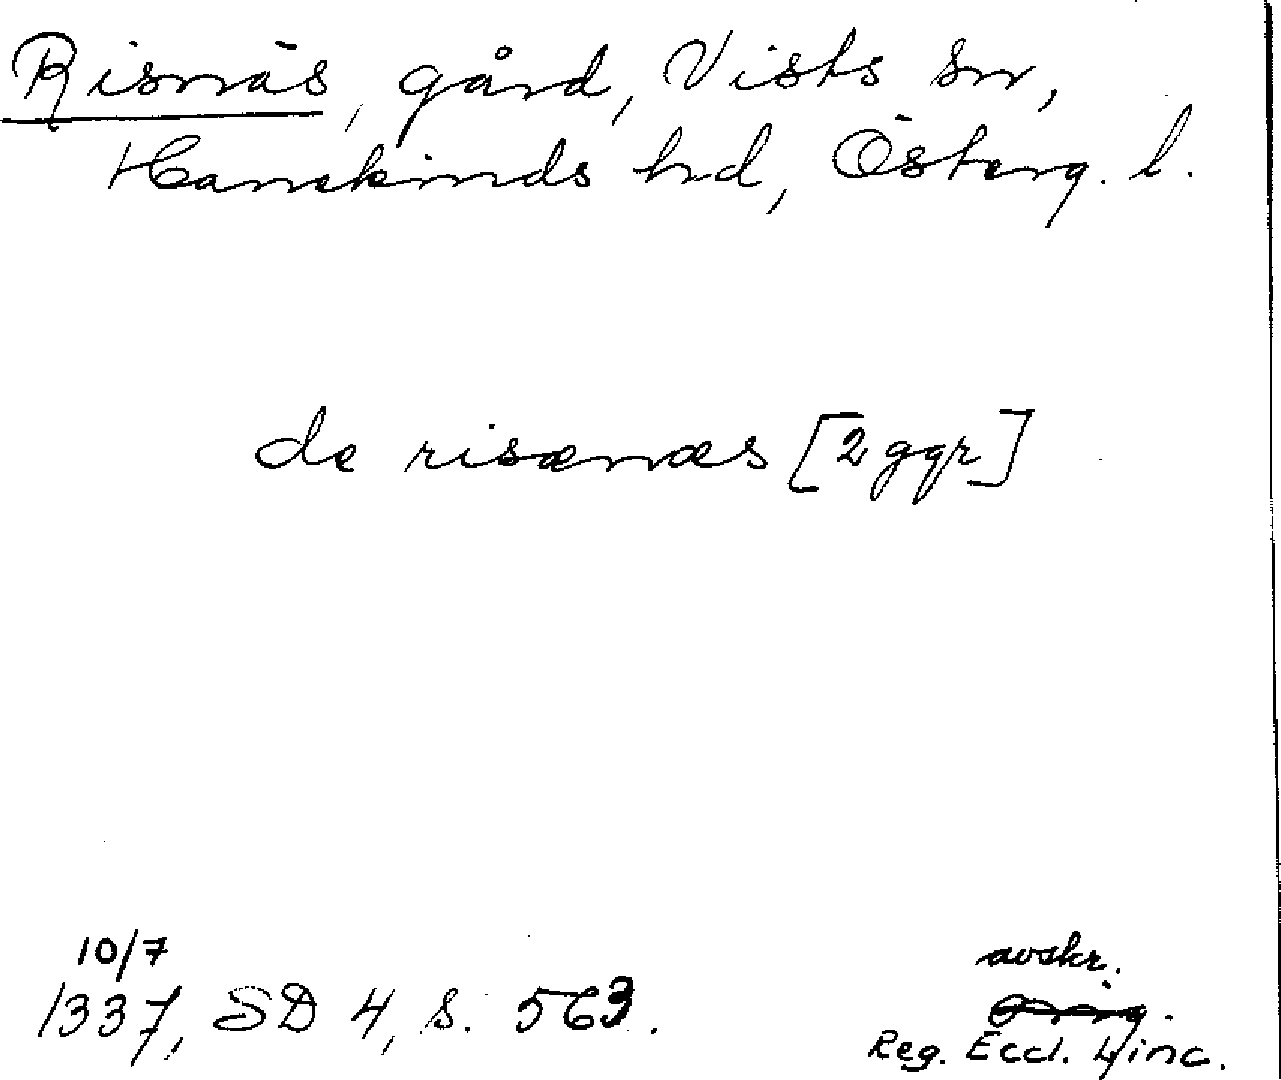 Risnäs, gård, Vists sn,
Hanekinds hd, Österg. l.
de risænæs [2 ggr]
10/7
1337, SD 4, s. 563.
avskr.
Orig.
Reg. Eccl. Linc.